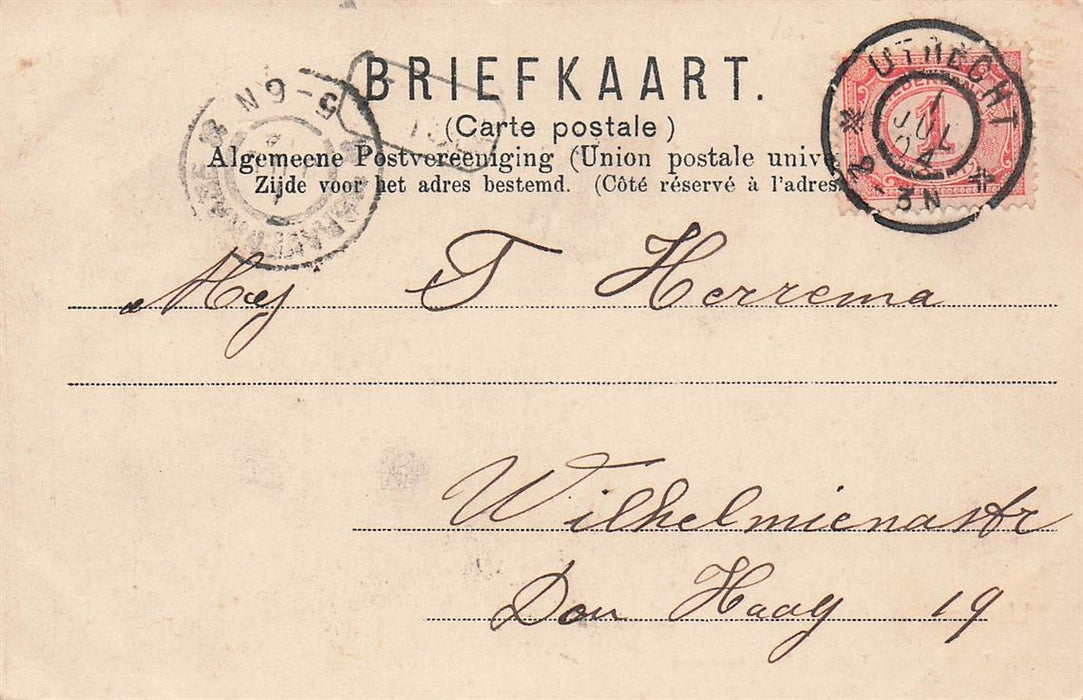 BRIEFKAART.
(Carte postale)
Algemeene Postvereeniging (Union postale unive
Zijde voor het adres bestemd. (Côté réservé à l'adres
UTRECHT
1
JUL
2-3N
1
5-6N
Mej T Herrema
Wilhelmienastr
Den Haag 19